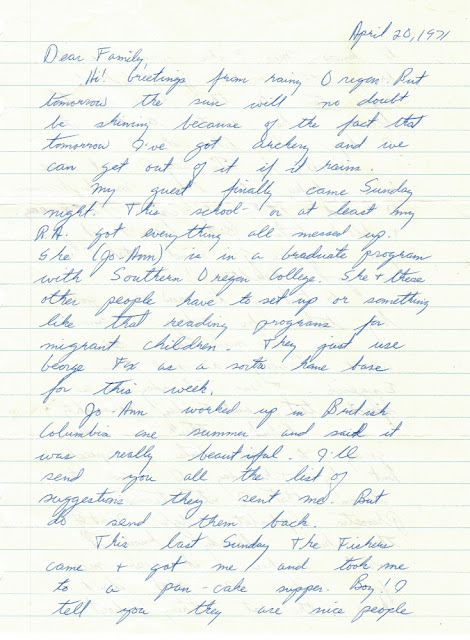 April 20, 1971
Dear Family,
Hi! Greetings from rainy Oregon. But
tomorrow the sun will no doubt
be shining because of the fact that
tomorrow I've got archery and we
can get out of it if it rains.
My guest finally came Sunday
night. This school - or at least my
R.A. got everything all messed up.
She (Jo-Ann) is in a Graduate program
with Southern Oregon College. She & these
other people have to set up or something
like that reading programs for
migrant children. They just use
George Fox as a sorta home base
for this week.
Jo-Ann worked up in British
Columbia one summer and said it
was really beautiful. I'll
send you all the list of
suggestions they sent me. But
do send them back.
This last Sunday the Fickers
came & got me and took me
to a pan-cake supper. Boy! I
tell you they are nice people